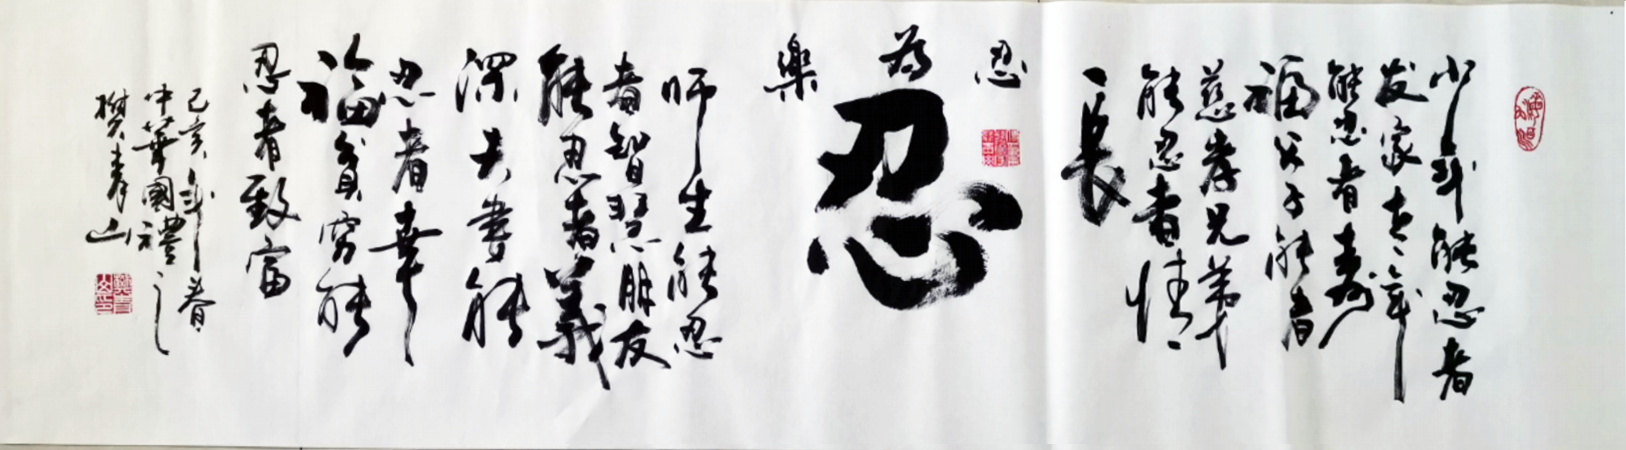 少年能忍者
发家老年
能忍者寿
福父子能者
慈孝兄弟
能忍者情
长
忍
为
忍
樂
师生能忍
者智慧朋友
能忍者義
深夫妻能
忍者幸
福貧穷能
忍者致富
己亥年春
中華國禮之
樊孝山